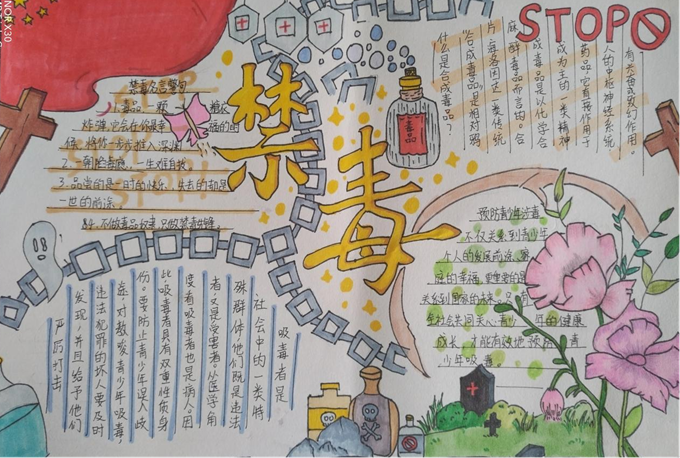 HONOR X30
STOP
禁毒
毒品
禁毒名言警句
1.毒品一颗 糖衣
炸弹,它会在你最幸 福的时
候,将你一步步推入深渊
2.一朝吸毒瘾,一生难自拔
3.品尝的是一时的快乐,失去的却是
一世的前途
84.不做毒品奴隶,只做禁毒先锋。
什么是合成毒品?
"合成毒品"是相对鸦
片、海洛因这一类传统
麻醉毒品而言的。合
成毒品是以化学合
成为主的一类精神
药品,它直接作用于
人的中枢神经系统
有兴奋或致幻作用。
预防青少年涉毒
不仅关系到青少年
个人的发展前途、家
庭的幸福,更重要的是
关系到国家的未来,只有
全社会共同关心青少年的健康
成长,才能有效地预防青
少年吸毒。
吸毒者是
社会中的一类特
殊群体他们既是违法
者,又是受害者。从医学角
度看吸毒者也是病人。因
此吸毒者具有双重性质身
份。要防止青少年误入歧
途,对教唆青少年吸毒,
违法犯罪的坏人要及时
发现,并且给予他们
严厉打击